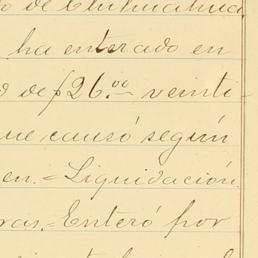 o de Chihuahua
ha enterado en
o de $26.00 veinti-
ue causó según
en.=Liquidación
ras.=Enteró por